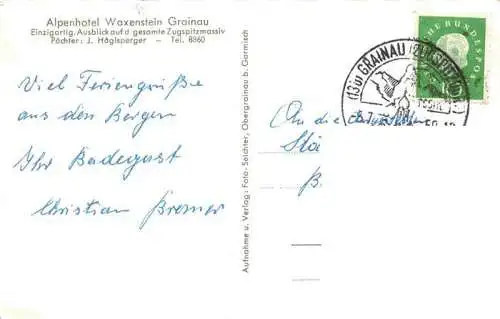 Alpenhotel Waxenstein Grainau
Einzigartig. Ausblick auf d gesamte Zugspitzmassiv
Pächter: J. Höglsperger — Tel. 8860
Viel Feriengrüße
aus den Bergen
Ihr Badegast
Christian Bremer
Aufnahme u. Verlag: Foto-Seichter, Obergrainau b. Garmisch
(13b) GRAINAU (ZUGSPITZDORF)
DEUTSCHE BUNDESPOST
An die